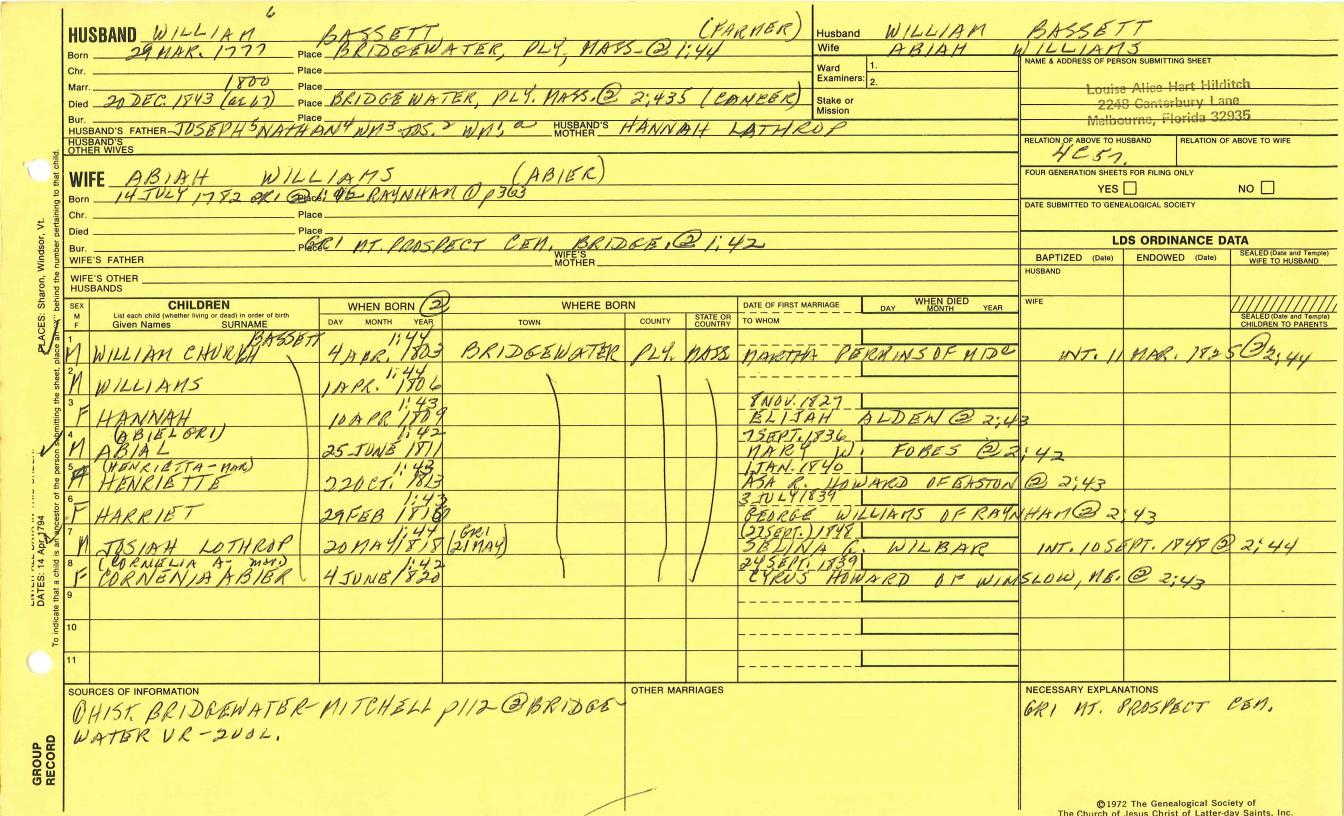 HUSBAND WILLIAM 6 BASSETT (FARMER)
Born 29 MAR. 1777 Place BRIDGEWATER, PLY, MASS @ 1:44
Chr. Place
Marr. 1800 Place
Died 20 DEC. 1843 Place BRIDGEWATER, PLY. MASS. @ 2:435 (CANCER)
Bur. Place
HUSBAND'S FATHER JOSEPH 5 NATHAN 4 WM 3 JOS. 2 WM 1 HUSBAND'S MOTHER HANNAH LATHROP
HUSBAND'S OTHER WIVES
WIFE ABIAH WILLIAMS (ABIER)
Born 14 JULY 1782 Place RAYNHAM ① p363
Chr. Place
Died Place
Bur. Place GRI MT. PROSPECT CEM. BRIDGE. ② 1:42
WIFE'S FATHER WIFE'S MOTHER
WIFE'S OTHER HUSBANDS
Husband WILLIAM BASSETT
Wife ABIAH WILLIAMS
Ward Examiners: 1.
2.
Stake or Mission
NAME & ADDRESS OF PERSON SUBMITTING SHEET
Louise Alice Hart Hilditch
2248 Canterbury Lane
Melbourne, Florida 32935
RELATION OF ABOVE TO HUSBAND RELATION OF ABOVE TO WIFE
4C5r.
FOUR GENERATION SHEETS FOR FILING ONLY
YES NO
DATE SUBMITTED TO GENEALOGICAL SOCIETY
LDS ORDINANCE DATA
BAPTIZED (Date) ENDOWED (Date) SEALED (Date and Temple) WIFE TO HUSBAND
HUSBAND
WIFE
SEALED (Date and Temple) CHILDREN TO PARENTS
SEX M F CHILDREN WHEN BORN ② WHERE BORN DATE OF FIRST MARRIAGE WHEN DIED
List each child (whether living or dead) in order of birth
Given Names SURNAME DAY MONTH YEAR TOWN COUNTY STATE OR COUNTRY TO WHOM DAY MONTH YEAR
1 BASSETT 1:44
M WILLIAM CHURCH 4 APR. 1803 BRIDGEWATER PLY. MASS MARTHA PERKINS OF MIDO INT. 11 MAR. 1825 ② 2:44
2 1:44
M WILLIAMS 1 APR. 1806
3 1:43 8 NOV. 1827
F HANNAH 10 APR 1809 ELIJAH ALDEN @ 2:43
4 (ABIEL GRI) 1:42 7 SEPT. 1836
M ABIAL 25 JUNE 1811 MARY W. FOBES @ 2:42
5 (HENRIETTA-MAR) 1:43 1 JAN. 1840
F HENRIETTE 22 OCT. 1813 ASA R. HOWARD OF EASTON @ 2:43
6 1:43 3 JULY 1839
F HARRIET 29 FEB 1816 GEORGE WILLIAMS OF RAYNHAM ② 2:43
7 1:44 (GRI 21 MAY) (27 SEPT.) 1848
M JOSIAH LOTHROP 20 MAY 1818 SELINA C. WILBAR INT. 10 SEPT. 1848 @ 2:44
8 (CORNELIA A- MAR) 1:42 24 SEPT. 1839
F CORNENIA ABIER 4 JUNE 1820 CYRUS HOWARD OF WINSLOW, ME. @ 2:43
9
10
11
SOURCES OF INFORMATION
① HIST. BRIDGEWATER-MITCHELL p112 ② BRIDGE-
WATER VR-2VOL.
OTHER MARRIAGES
NECESSARY EXPLANATIONS
GRI MT. PROSPECT CEM.
©1972 The Genealogical Society of
The Church of Jesus Christ of Latter-day Saints, Inc.
GROUP RECORD
DATES: 14 Apr 1794
PLACES: Sharon, Windsor, Vt.
To indicate that a child is an ancestor of the person submitting the sheet, place an behind the number pertaining to that child.